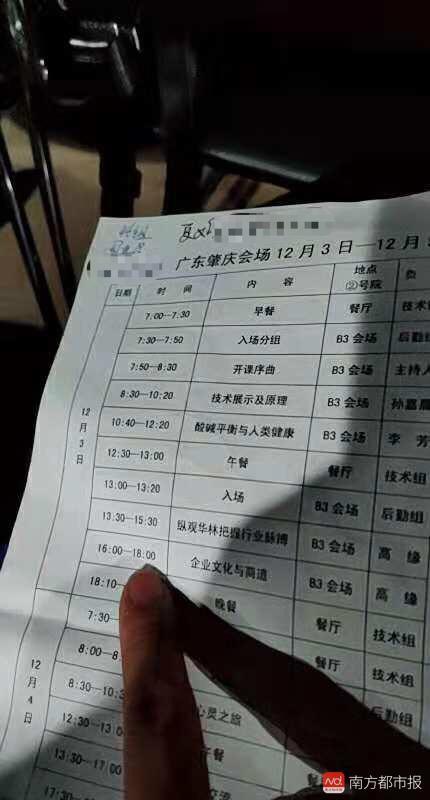 广东肇庆会场12月3日—12月
日期 时 间 内 容 地点 ②号院 负
12月3日
7:00—7:30 早餐 餐厅 技术
7:30—7:50 入场分组 B3 会场 后勤组
7:50—8:30 开课序曲 B3 会场 主持人
8:30—10:20 技术展示及原理 B3 会场 孙嘉
10:40—12:20 酸碱平衡与人类健康 B3 会场 李 芳
12:30—13:00 午餐 餐厅 技术组
13:00—13:20 入场 B3 会场 后勤组
13:30—15:30 纵观华林把握行业脉搏 B3 会场 高 缘
16:00—18:00 企业文化与商道 B3 会场 高 缘
18:10— 晚餐 餐厅 技术组
12月4日
7:30— 餐厅 技术组
8:00—8 B3 会场 后勤组
8:30—10:3 心灵之旅
12:30—13 午餐
13:30—17 交流
17:30
南方都市报